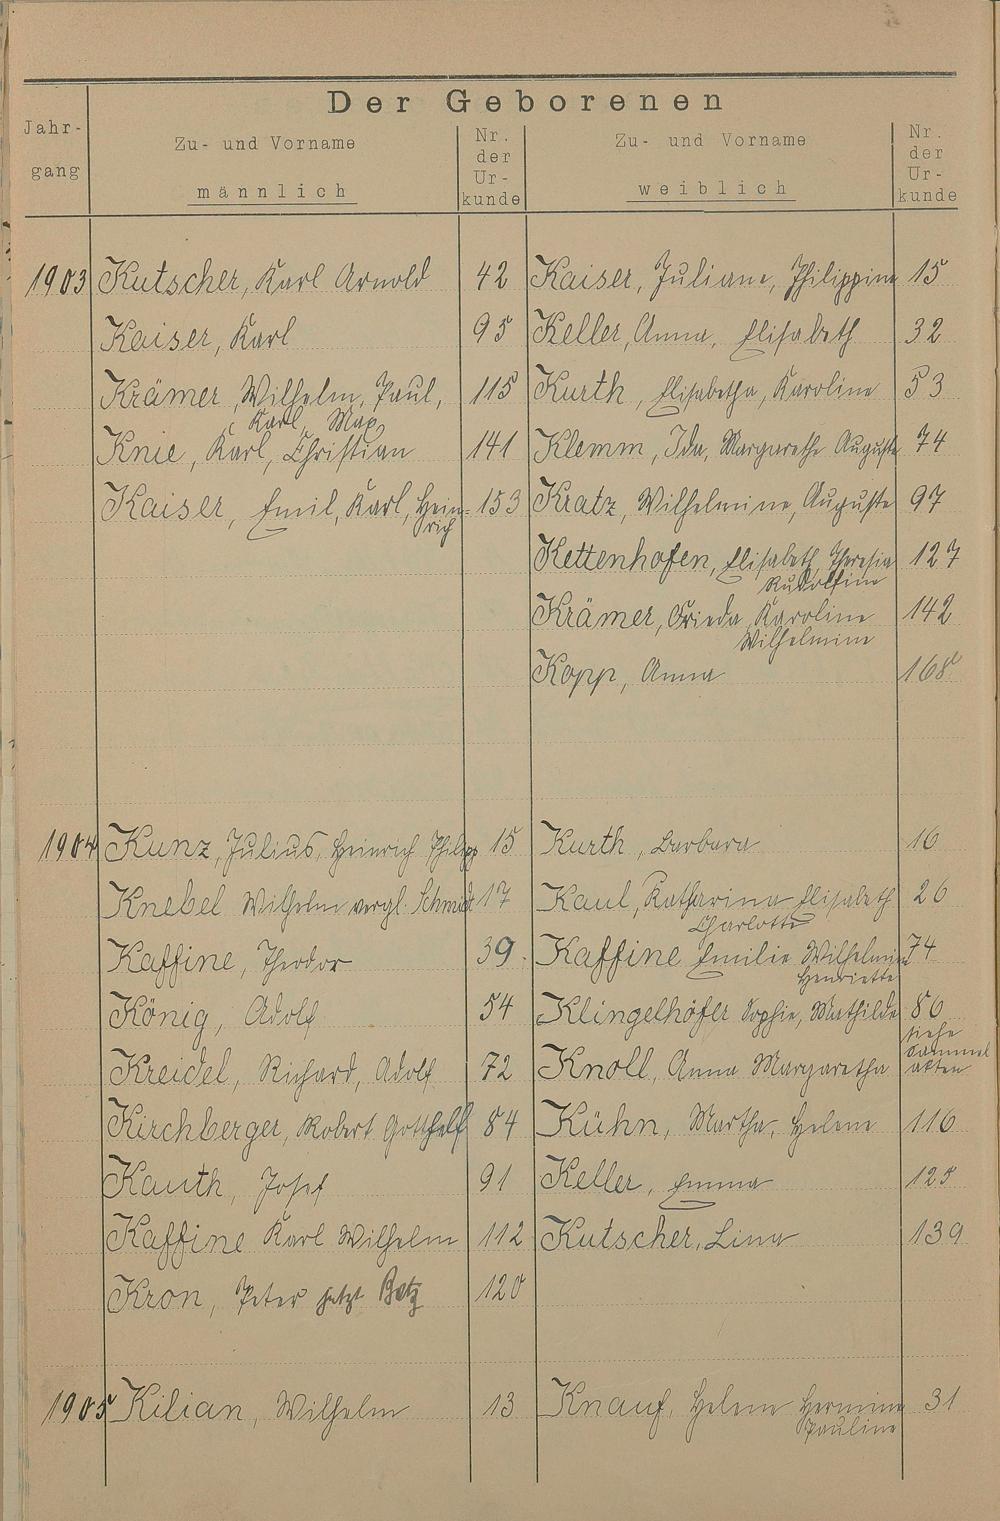 Der Geborenen
Jahr-
gang
Zu- und Vorname
männlich
Nr.
der
Ur-
kunde
Zu- und Vorname
weiblich
Nr.
der
Ur-
kunde
1903 Kutscher, Karl Arnold 42 Kaiser, Juliane, Philippine 15
Kaiser, Karl 95 Keller, Anna, Elisabeth 32
Krämer, Wilhelm, Paul, 115 Kurth, Elisabetha, Karoline 53
Karl, Max
Knie, Karl, Christian 141 Klemm, Ida, Margarethe Auguste 74
Kaiser, Emil, Karl, Hein- 153 Kratz, Wilhelmine, Auguste 97
rich
Kettenhofen, Elisabeth, Theresia 127
Rudolfine
Krämer, Frieda, Karoline 142
Wilhelmine
Kopp, Anna 168
1904 Kunz, Julius, Heinrich Philipp 15 Kurth, Barbara 16
Knebel Wilhelm vergl. Schmidt 17 Kaul, Katharina Elisabeth 26
Charlotte
Kaffine, Theodor 39. Kaffine Emilie Wilhelmine 74
Henriette
König, Adolf 54 Klingelhöfer Sophie, Mathilde 86
Kreidel, Richard, Adolf 72 Knoll, Anna Margaretha siehe
Sammel
akten
Kirchberger, Robert Gotthelf 84 Kühn, Martha, Helene 116
Kauth, Josef 91 Keller, Emma 125
Kaffine Karl Wilhelm 112 Kutscher, Lina 139
Kron, Peter jetzt Betz 120
1905 Kilian, Wilhelm 13 Knauf, Helene Hermine 31
Pauline